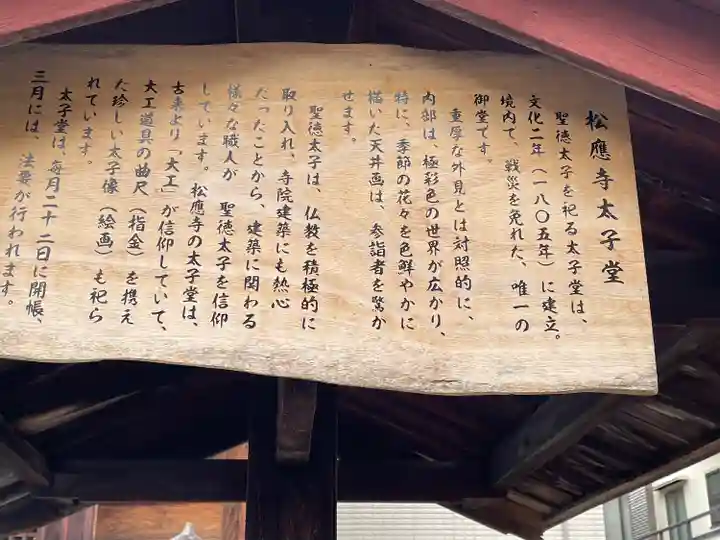 松應寺太子堂
聖徳太子を祀る太子堂は、
文化二年(一八〇五年)に建立。
境内で、戦災を免れた、唯一の
御堂です。
重厚な外見とは対照的に、
内部は、極彩色の世界が広がり、
特に、季節の花々を色鮮やかに
描いた天井画は、参詣者を驚か
せます。
聖徳太子は、仏教を積極的に
取り入れ、寺院建築にも熱心
だったことから、建築に関わる
様々な職人が 聖徳太子を信仰
しています。松應寺の太子堂は、
古来より「大工」が信仰していて、
大工道具の曲尺(指金)を携え
た珍しい太子像(絵画)も祀ら
れています。
太子堂は、毎月二十二日に開帳、
三月には、法要が行われます。